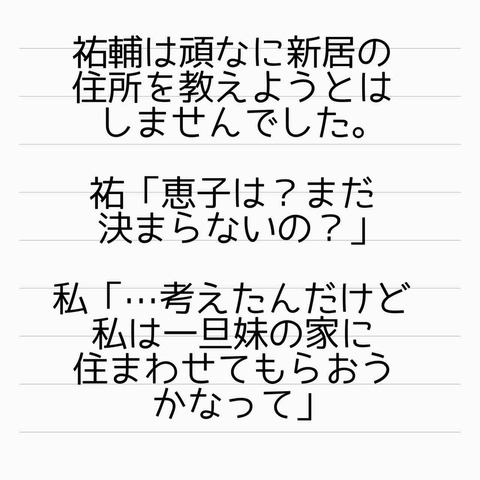 祐輔は頑なに新居の
住所を教えようとは
しませんでした。
祐「恵子は？まだ
決まらないの？」
私「…考えたんだけど
私は一旦妹の家に
住まわせてもらおう
かなって」